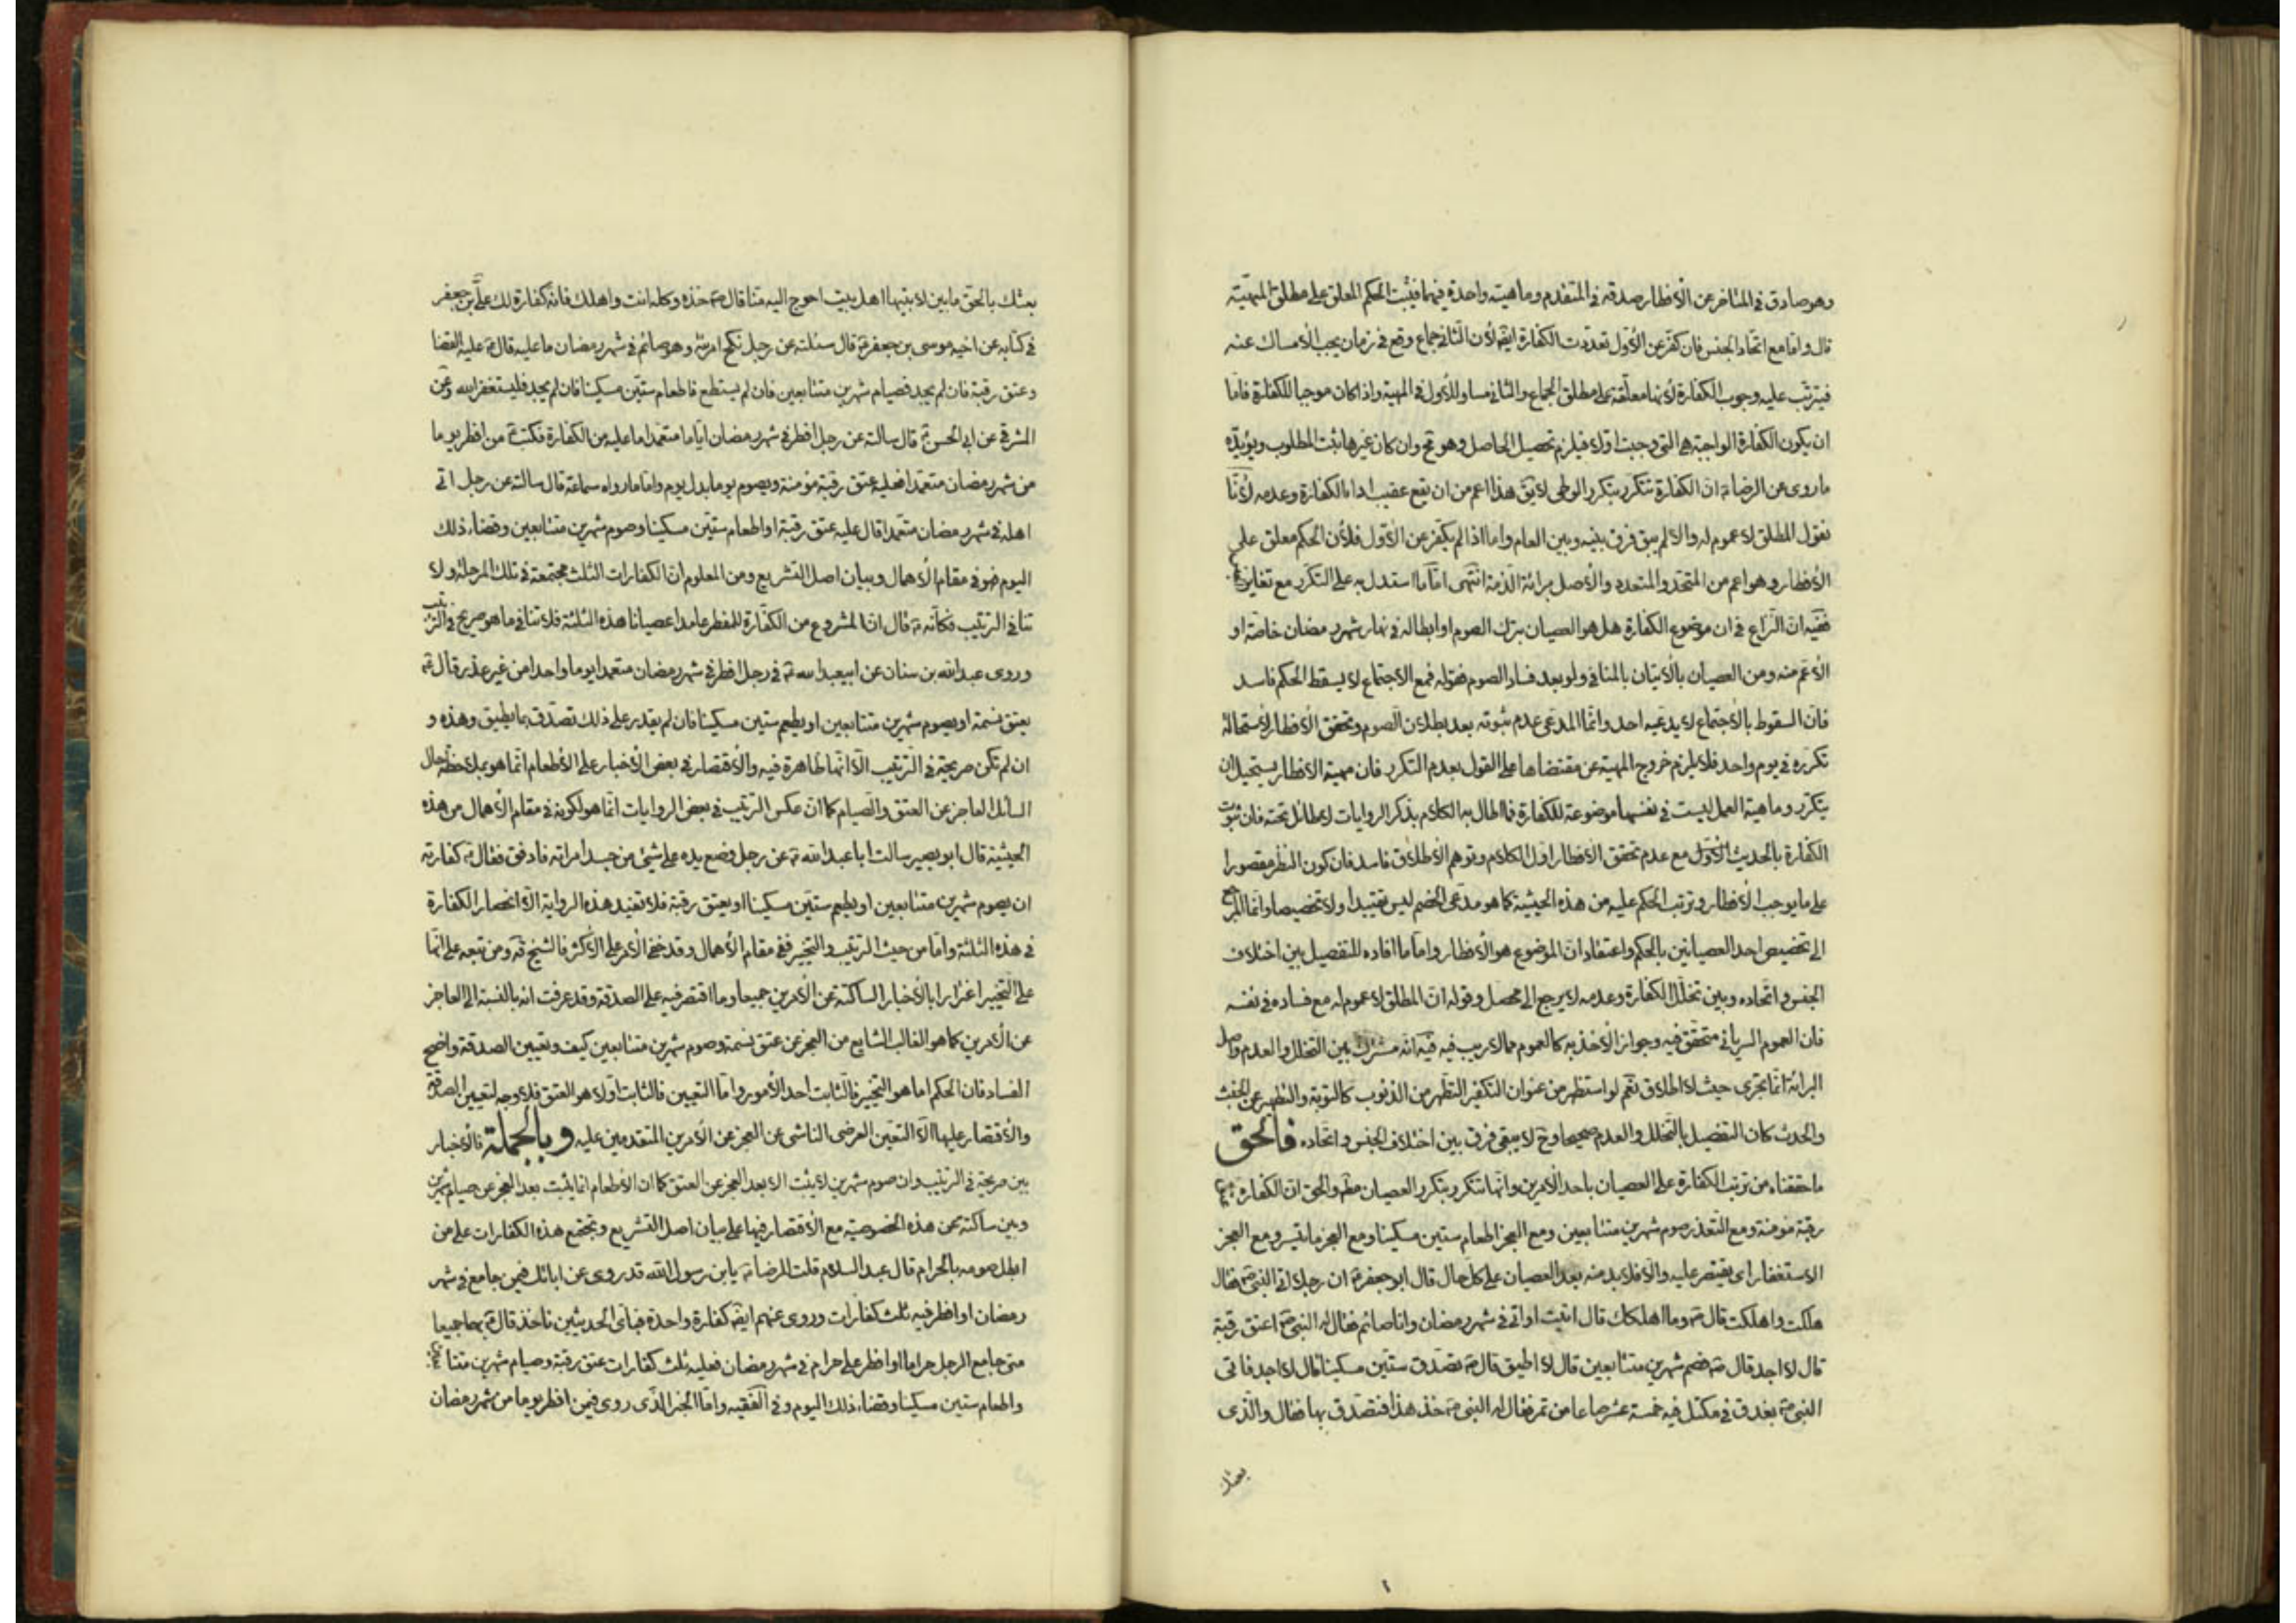 وهو صادق فى المتاخر عن الأفطار صدقه فى المتقدم وماهيته واحدة فيهما فيثبت الحكم المعلق على مطلق المهيّة
قال وامّا مع اتحاد الجنس فان كفّر عن الأول تعددت الكفارة ايضًا لأن الثانى جماع وقع فى زمان يجب الأمساك عنه
فيترتب عليه وجوب الكفارة لأنها معلّقة على مطلق الجماع والثانى مساو للأول فى المهية واذا كان موجبا للكفارة فامّا
ان يكون الكفارة الواجبة هى التى وجبت اولا فيلزم تحصيل الحاصل وهو مح وان كان غيرها ثبت المطلوب ويؤيده
ما روى عن الرضا ع ان الكفارة تتكرر بتكرر الوطى لا يق هذا اعم من ان يقع عقيب اداء الكفارة وعدمه لأنّا
نقول المطلق لا عموم له والا لم يبق فرق بينه وبين العام واما اذا لم يكفّر عن الأول فلأن الحكم معلق على
الأفطار وهو اعم من المتحد والمتعدد والأصل برائة الذمة انتهى امّا ما استدل به على التكرر مع تغاير
ففيه ان النزاع فى ان موضوع الكفارة هل هو العصيان بترك الصوم او ابطاله فى نهار شهر رمضان خاصة او
الأعم منه ومن العصيان بالأتيان بالمنافى ولو بعد فساد الصوم فقوله فمع الاجتماع لا يسقط الحكم فاسد
فان السقوط بالأجتماع لا يدعيه احد وانما المدعى عدم ثبوته بعد بطلان الصوم وتحقق الأفطار لأستحالة
تكرره فى يوم واحد فلا يلزم خروج المهية عن مقتضاها على القول بعدم التكرر فان مهية الافطار يستحيل ان
يتكرر وماهية العمل ليست فى نفسها موضوعة للكفارة فما اطال به الكلام بذكر الروايات لا طائل تحته فان ثبوت
الكفارة بالحديث الأول مع عدم تحقق الأفطار اول الكلام وتوهم الأطلاق فاسد فان كون النظر مقصورا
على ما يوجب الأفطار وترتب الحكم عليه من هذه الحيثية كما هو مدعى الخصم ليس تقييدا ولا تخصيصا وانما المرجع
الى تخصيص احد العصيانين بالحكم واعتقاد ان الموضوع هو الأفطار واما ما افاده للتفصيل بين اختلاف
الجنس واتحاده وبين تخلل الكفارة وعدمه لا يرجع الى محصل وقوله ان المطلق لا عموم له مع فساده فى نفسه
فان العموم السريانى متحقق فيه وجواز الأخذ به كالعموم مما لا ريب فيه فيه انه مشترك بين التخلل والعدم واصل
البرائة انما تجرى حيث لا اطلاق نعم لو استظهر من عنوان التكفير التطهر من الذنوب كالتوبة والتطهير عن الخبث
والحدث كان التفصيل بالتخلل والعدم صحيحا وح لا يبقى فرق بين اختلاف الجنس واتحاده فالحق
ما حققناه من ترتب الكفارة على العصيان باحد الأمرين وانها تتكرر بتكرر العصيان مطم والحق ان الكفارة
رقبة مؤمنة ومع التعذر صوم شهرين متتابعين ومع العجز اطعام ستين مسكينا ومع العجز ما تيسر ومع العجز
الاستغفار اى يقتصر عليه والا فلا بد منه بعد العصيان على كل حال قال ابو جعفر ع ان رجلا اتى النبى ص فقال
هلكت واهلكت قال ص وما اهلكك قال اتيت امراتى فى شهر رمضان وانا صائم فقال له النبى ص اعتق رقبة
قال لا اجد قال ص فصم شهرين متتابعين قال لا اطيق قال ص تصدق ستين مسكينا قال لا اجد فاتى
النبى ص بعذق فى مكتل فيه خمسة عشر صاعا من تمر فقال له النبى ص خذ هذا فتصدق بها فقال والذى
بعثك
بعثك بالحق ما بين لابتيها اهل بيت احوج اليه منا قال ص خذه وكله انت واهلك فانه كفارة لك على بن جعفر
فى كتابه عن اخيه موسى بن جعفر ع قال سئلته عن رجل نكح امرئته وهو صائم فى شهر رمضان ما عليه قال ع عليه القضا
وعتق رقبة فان لم يجد فصيام شهرين متتابعين فان لم يستطع فاطعام ستين مسكينا فان لم يجد فليستغفر الله وعن
المشرقى عن ابى الحسن ع قال سالته عن رجل افطر فى شهر رمضان اياما متعمدا ما عليه من الكفارة فكتب ع من افطر يوما
من شهر رمضان متعمدا فعليه عتق رقبة مؤمنة ويصوم يوما بدل يوم واما ما رواه سماعة قال سالته عن رجل اتى
اهله فى شهر رمضان متعمدا قال عليه عتق رقبة او اطعام ستين مسكينا وصوم شهرين متتابعين وقضاء ذلك
اليوم فهو فى مقام الأهمال وبيان اصل التشريع ومن المعلوم ان الكفارات الثلث مجتمعة فى تلك المرحلة ولا
تنافى الترتيب فكانه ع قال ان المشروع من الكفارة للمفطر عامدا عصيانا هذه الثلثة فلا تنافى ما هو صريح فى الترتيب
وروى عبد الله بن سنان عن ابيعبد الله ع فى رجل افطر فى شهر رمضان متعمدا يوما واحدا من غير عذر قال ع
يعتق نسمة او يصوم شهرين متتابعين او يطعم ستين مسكينا فان لم يقدر على ذلك تصدق بما يطيق وهذه و
ان لم تكن صريحة فى الترتيب الا انها ظاهرة فيه والأقتصار فى بعض الأخبار على الأطعام انما هو بملاحظة حال
السائل العاجز عن العتق والصيام كما ان عكس الترتيب فى بعض الروايات انما هو لكونه فى مقام الأهمال من هذه
الحيثية قال ابو بصير سالت ابا عبد الله ع عن رجل وضع يده على شئ من جسد امراته فادفق فقال ع كفارته
ان يصوم شهرين متتابعين او يطعم ستين مسكينا او يعتق رقبة فلا تفيد هذه الرواية الا انحصار الكفارة
فى هذه الثلثة واما من حيث الترتيب والتخيير ففى مقام الأهمال وقد خفى الأمر على الأكثر فالشيخ قه ومن تبعه على انها
على التخيير اغترارا بالأخبار الساكتة عن الأمرين جميعا وما اقتصر فيه على الصدقة وقد عرفت انه بالنسبة الى العاجز
عن الأمرين كما هو الغالب الشايع من العجز عن عتق نسمة وصوم شهرين متتابعين كيف وتعيين الصدقة واضح
الفساد فان الحكم اما هو التخيير فالثابت احد الأمور واما التعيين فالثابت اولا هو العتق فلا وجه لتعيين الصدقة
والأقتصار عليها الا التعين العرضى الناشى عن العجز عن الأمرين المتقدمين عليه وبالجملة فالأخبار
بين صريحة فى الترتيب وان صوم شهرين لا يثبت الا بعد العجز عن العتق كما ان الأطعام انما يثبت بعد العجز عن صيام شهرين
وبين ساكتة عن هذه الخصوصية مع الأقتصار فيها على بيان اصل التشريع وتجتمع هذه الكفارات على من
ابطل صومه بالحرام قال عبد السلام قلت للرضا ع يابن رسول الله قد روى عن ابائك فيمن جامع فى شهر
رمضان او افطر فيه ثلث كفارات وروى عنهم ايضا كفارة واحدة فباى الحديثين ناخذ قال ع بهما جميعا
متى جامع الرجل حراما او افطر على حرام فى شهر رمضان فعليه ثلث كفارات عتق رقبة وصيام شهرين متتابعين
واطعام ستين مسكينا وقضاء ذلك اليوم وفى الفقيه واما الخبر الذى روى فيمن افطر يوما من شهر رمضان